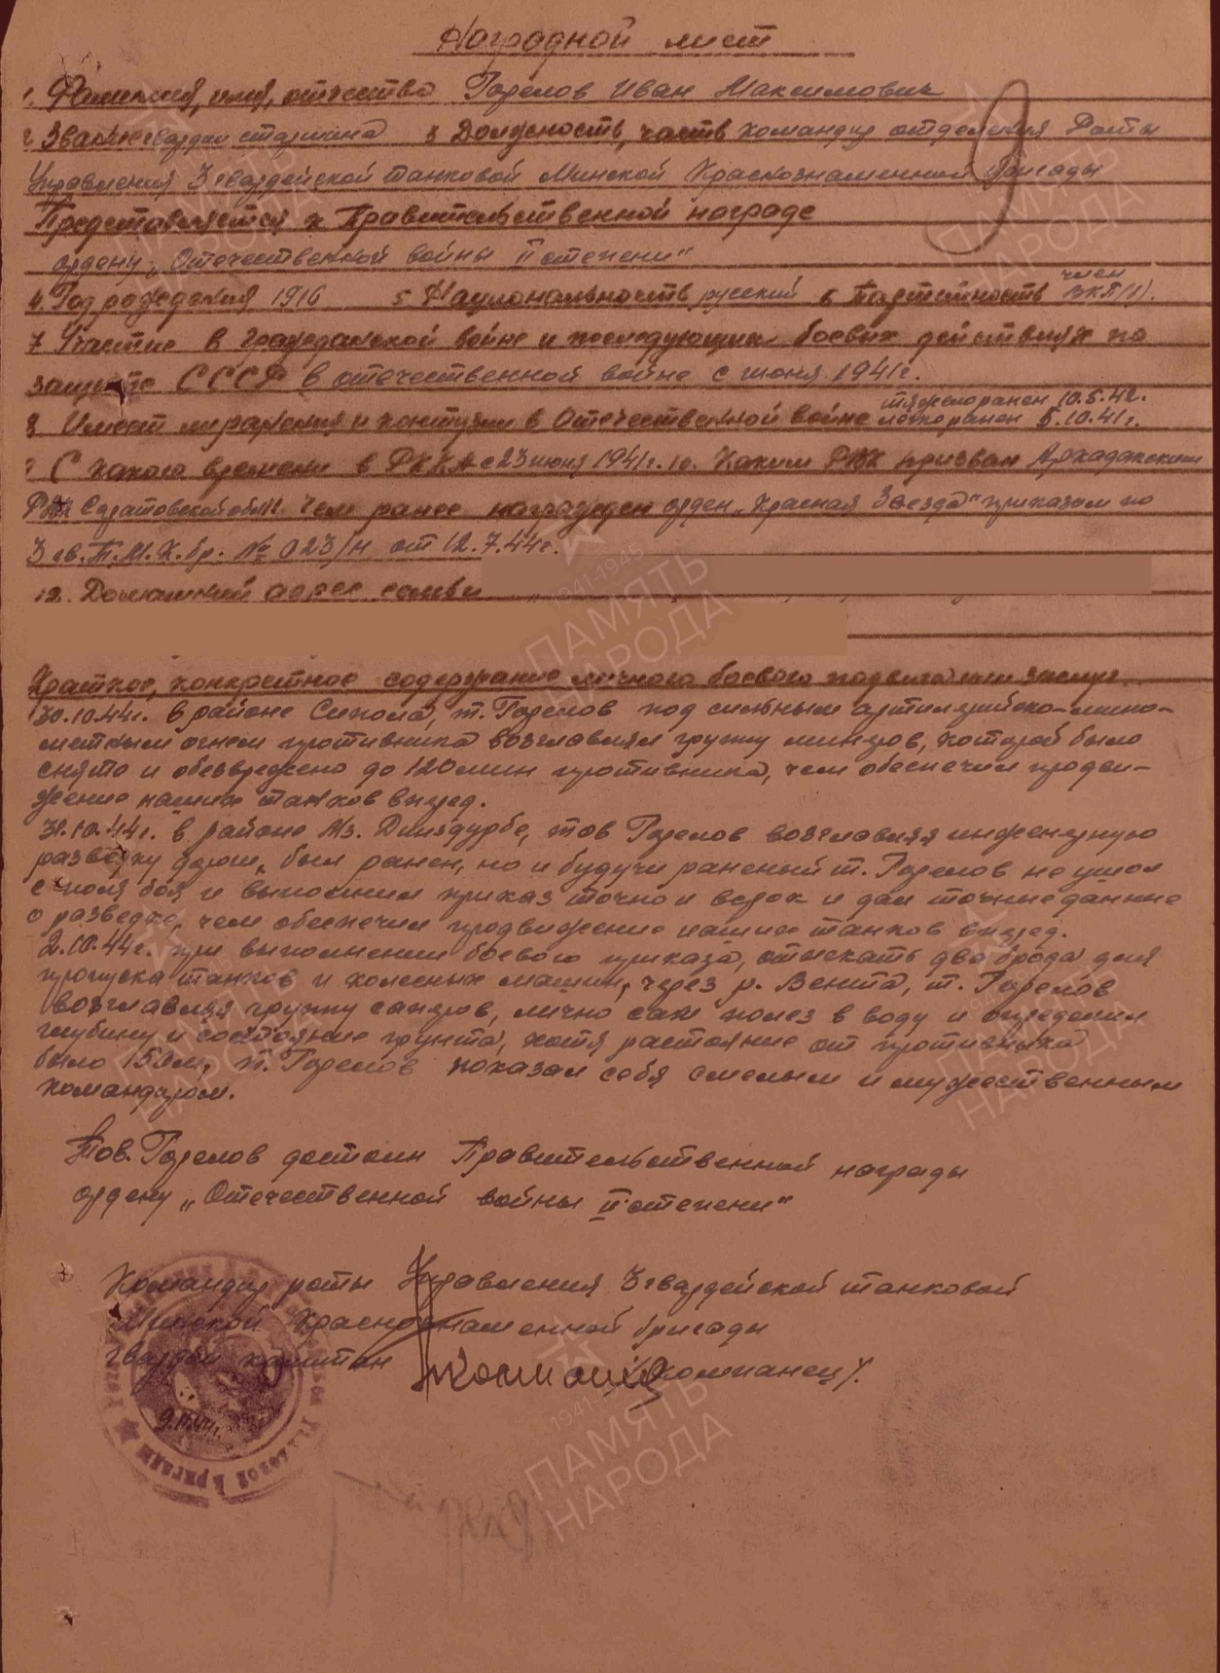 Наградной лист
1. Фамилия, имя, отчество Горелов Иван Максимович
2 Звание гвардии старшина 3 Должность, часть командир отделения Роты
Управления 3 гвардейской танковой Минской Краснознаменной бригады
Представляется к Правительственной награде
ордену „Отечественной войны II степени"
4. Год рождения 1916 5 Национальность русский 6 Партийность член ВКП(б).
7 Участие в гражданской войне и последующих боевых действиях по
защите СССР в отечественной войне с июня 1941г.
8 Имеет ли ранения и контузии в Отечественной войне тяжело ранен 10.5.42. легко ранен 5.10.41г.
9 С какого времени в РККА с 23 июня 1941г. 10. Каким РВК призван Аркадакским
РВК Саратовской обл. 11. Чем ранее награжден орден „Красная Звезда" приказом по
3 гв.Т.М.К.бр. № 023/н от 12.7.44г.
12. Домашний адрес семьи
Краткое, конкретное содержание личного боевого подвига или заслуг
30.10.44г. в районе т. Горелов под сильным артиллрийско-мино-
метным огнем противника возглавлял группу минеров, которой было
снято и обезврежено до 120 мин противника, чем обеспечил продви-
жение наших танков вперед.
31.10.44г. в районе Мз. Динздурбе, тов Горелов возглавляя инженерную
разведку был ранен, но и будучи раненый т. Горелов не ушел
с поля боя и выполнил приказ точно и в срок и дал точные данные
о разведке, чем обеспечил продвижение наших танков вперед.
2.10.44г. при выполнении боевого приказа, отыскать два брода для
пропуска танков и колесных машин, через р. Вента, т. Горелов
возглавляя группу саперов, лично сам полез в воду и определил
глубину и состояние грунта, хотя растояние от противника
было 150м, т. Горелов показал себя смелым и мужественным
командиром.
Тов. Горелов достоин Правительственной награды
ордену „Отечественной войны II степени"
Командир роты Управления 3 гвардейской танковой
Минской Краснознаменной бригады
гвардии капитан /Компанец/.
9.11.44г.
1941-1945
ПАМЯТЬ
НАРОДА